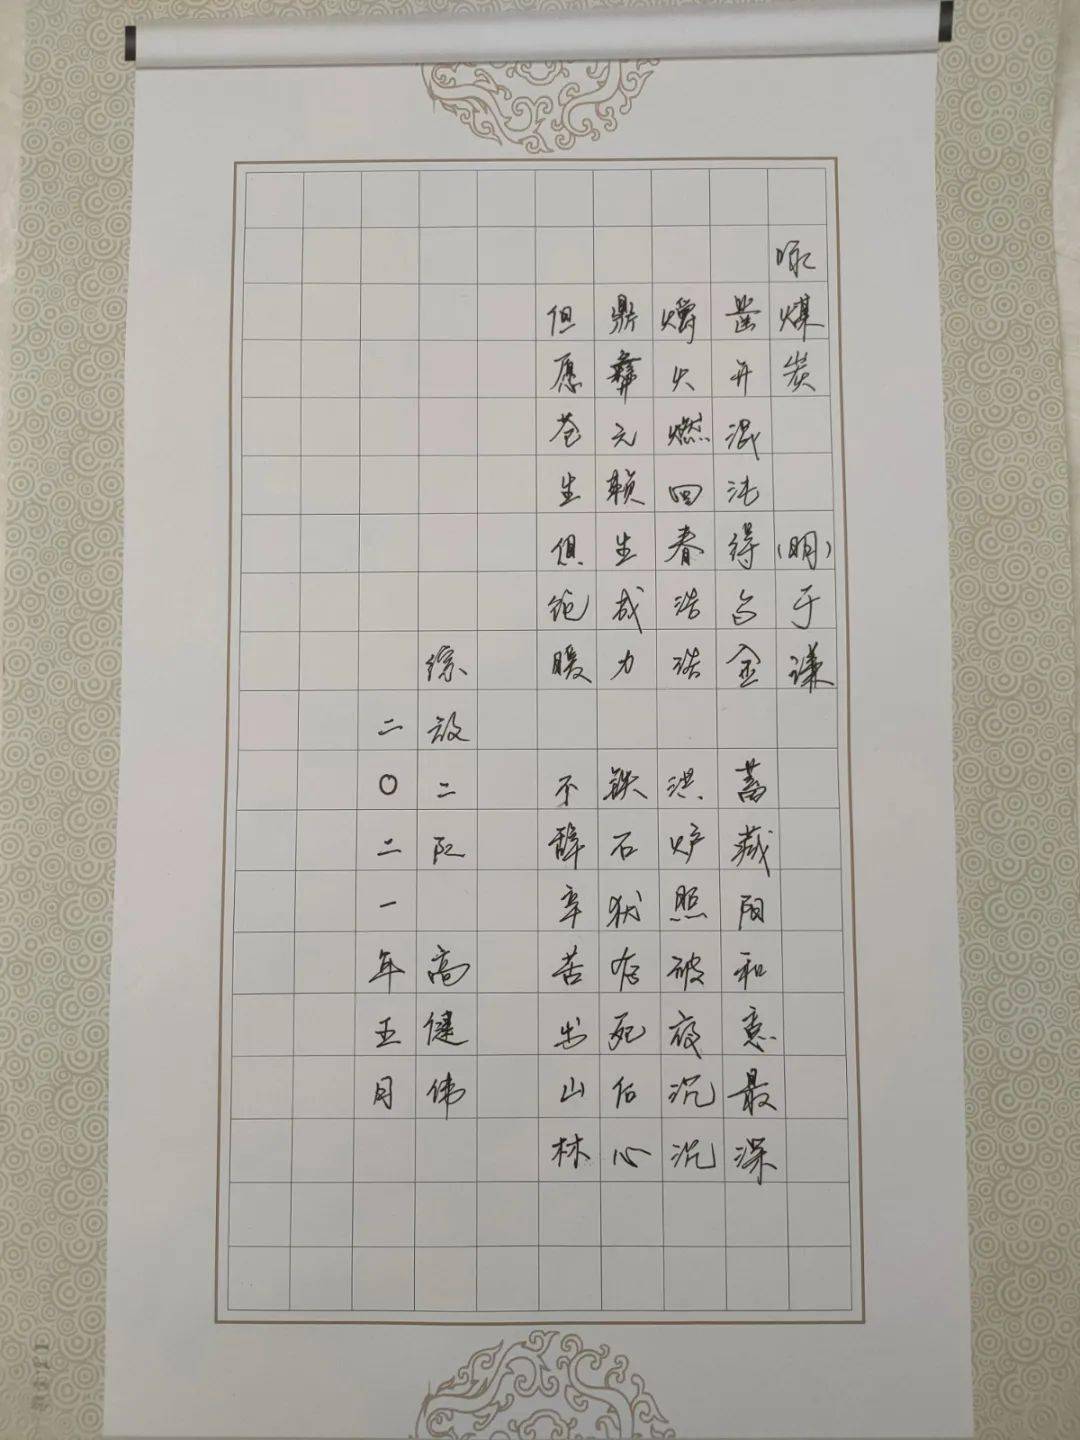 咏煤炭 （明）于谦
凿开混沌得乌金 蓄藏阳和意最深
爝火燃回春浩浩 洪炉照破夜沉沉
鼎彝元赖生成力 铁石犹存死后心
但愿苍生俱饱暖 不辞辛苦出山林
综放二队 高健伟
二〇二一年五月